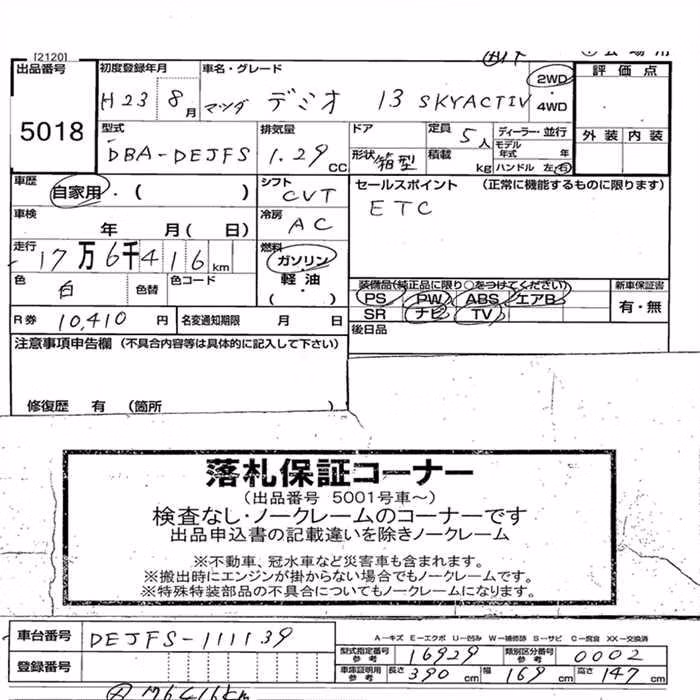 [2120]
出品番号
5018
初度登録年月
H23 8月
車名・グレード
マツダ デミオ 13 SKYACTIV
2WD
4WD
評価点
外装 内装
型式
DBA-DEJFS
排気量
1.29 CC
ドア
形状 箱型
定員 5人
積載 kg
ディーラー・並行
モデル年式 年
ハンドル 左・右
車歴
自家用・( )
シフト
CVT
セールスポイント (正常に機能するものに限ります)
ETC
車検
年 月( 日)
冷房
AC
走行
17万6千416km
燃料
ガソリン・
軽油
・( )
色
白
色替
色コード
装備品(純正品に限り○をつけてください)
PS PW ABS エアB
SR ナビ TV
新車保証書
有・無
R券 10,410円
名変通知期限 月 日
後日品
注意事項申告欄 (不具合内容等は具体的に記入して下さい)
修復歴 有 (箇所 )
落札保証コーナー
(出品番号 5001号車~)
検査なし・ノークレームのコーナーです
出品申込書の記載違いを除きノークレーム
※不動車、冠水車など災害車も含まれます。
※搬出時にエンジンが掛からない場合でもノークレームです。
※特殊特装部品の不具合についてもノークレームになります。
車台番号 DEJFS-111139
A-キズ E-エクボ U-凹み W-補修跡 S-サビ C-腐食 XX-交換済
型式指定番号 参考 16929
類別区分番号 参考 0002
登録番号
車庫証明用 参考 長さ 390cm 幅 169cm 高さ 147cm